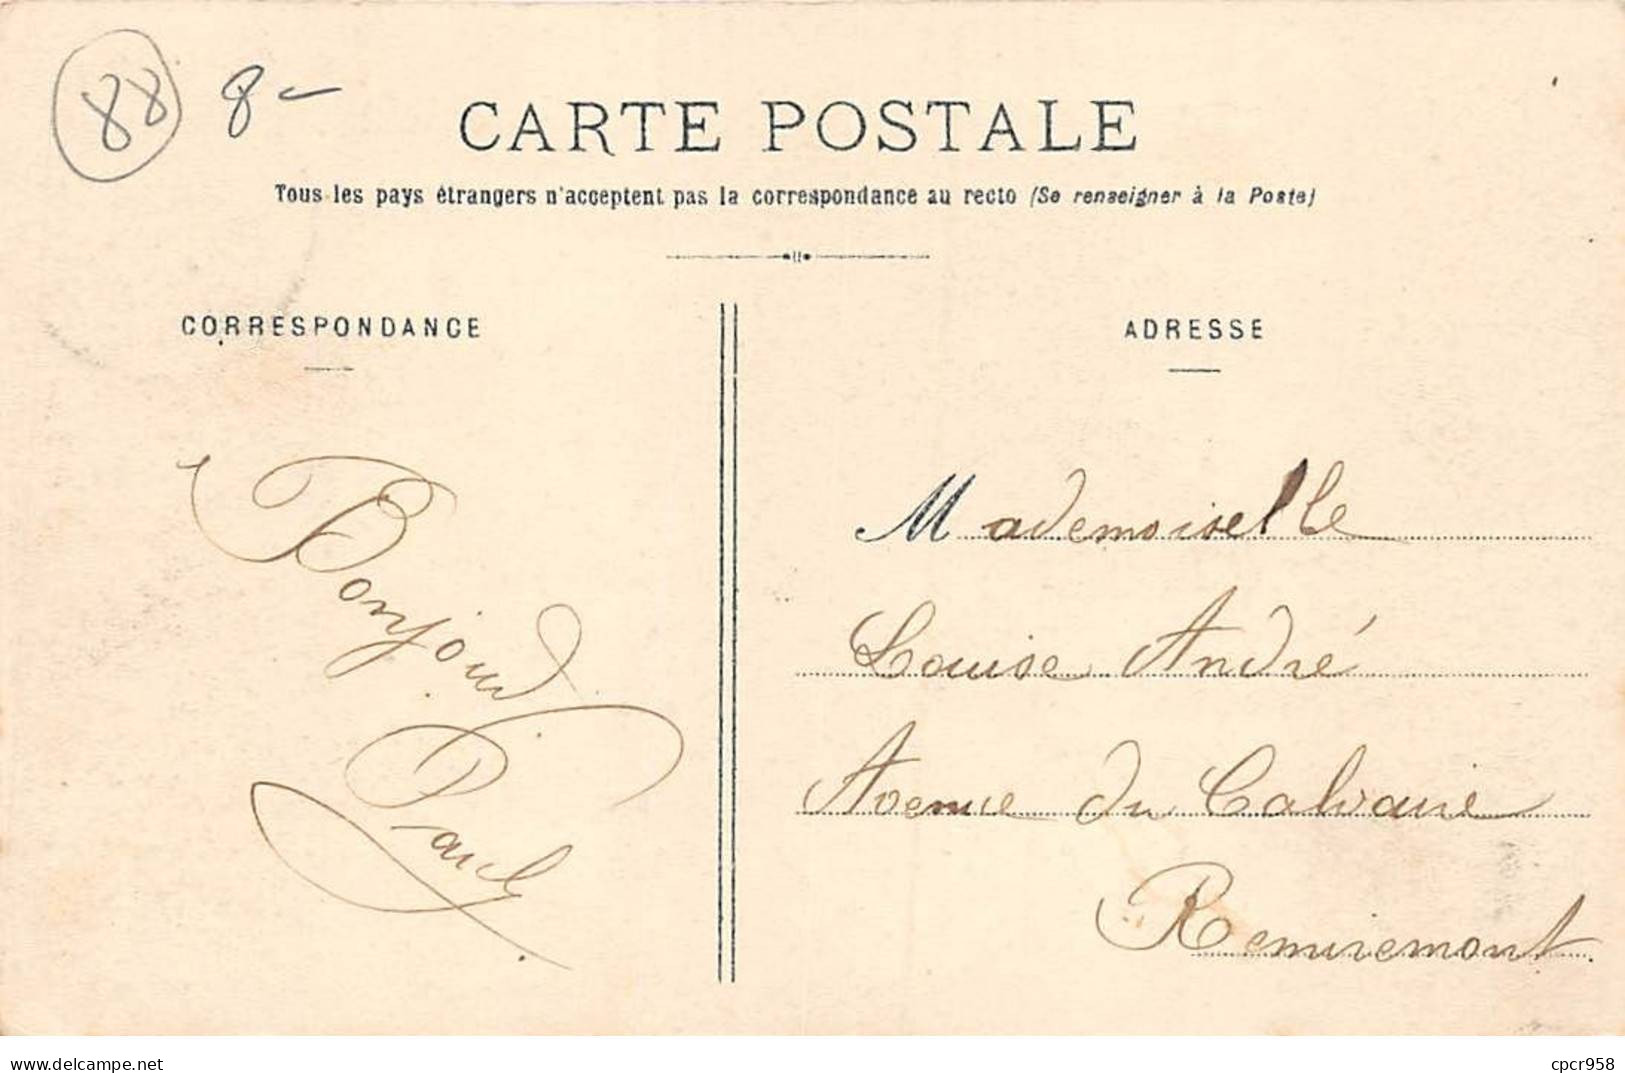 88 8-
CARTE POSTALE
Tous les pays étrangers n'acceptent pas la correspondance au recto (Se renseigner à la Poste)
CORRESPONDANCE
ADRESSE
Bonjour
Paul
Mademoiselle
Louise André
Avenue du Calvaire
Remiremont.
www.delcampe.net
cpcr958